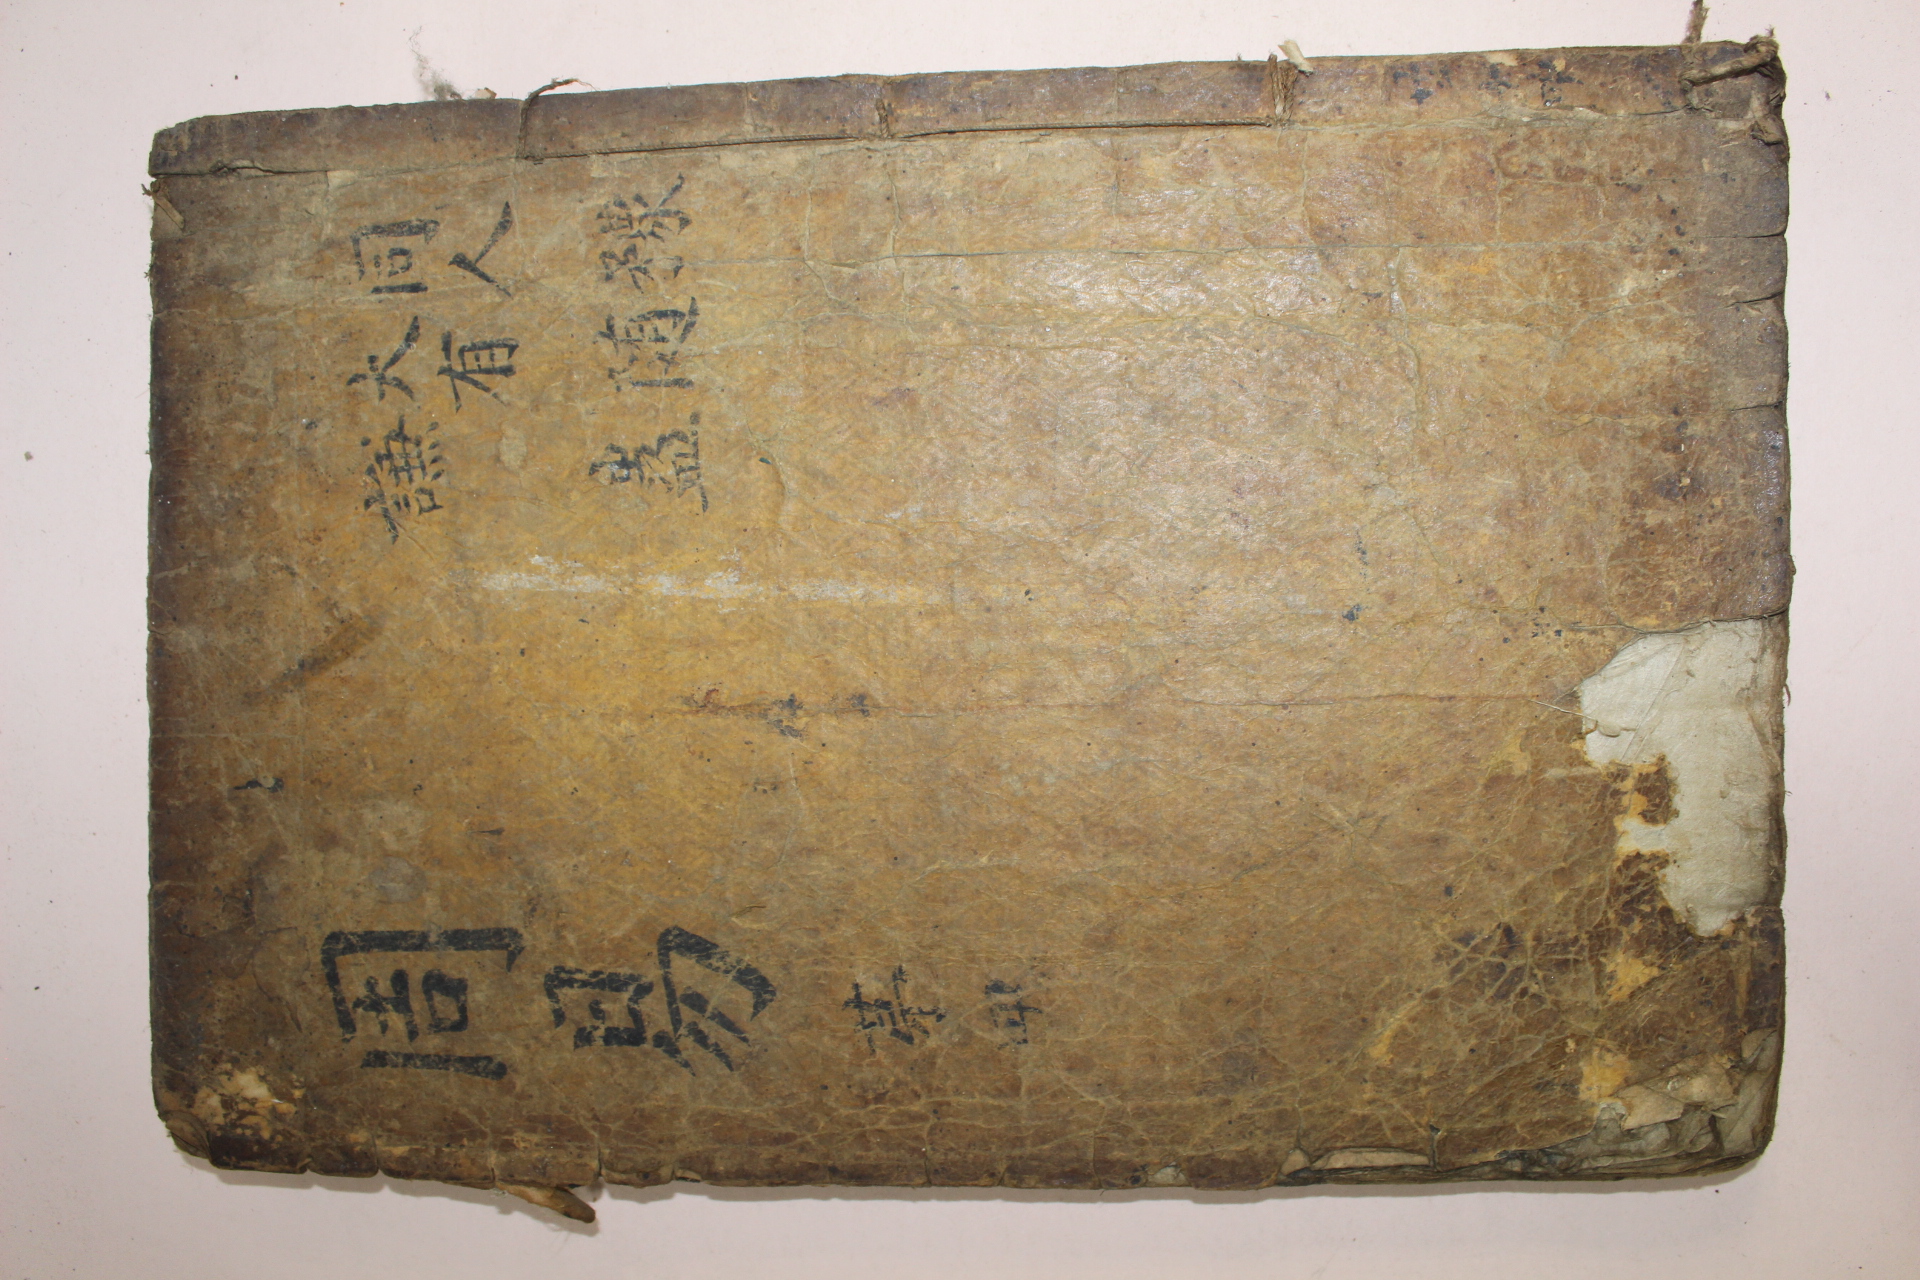 同人
大有
謙
豫
隨
蠱
周易